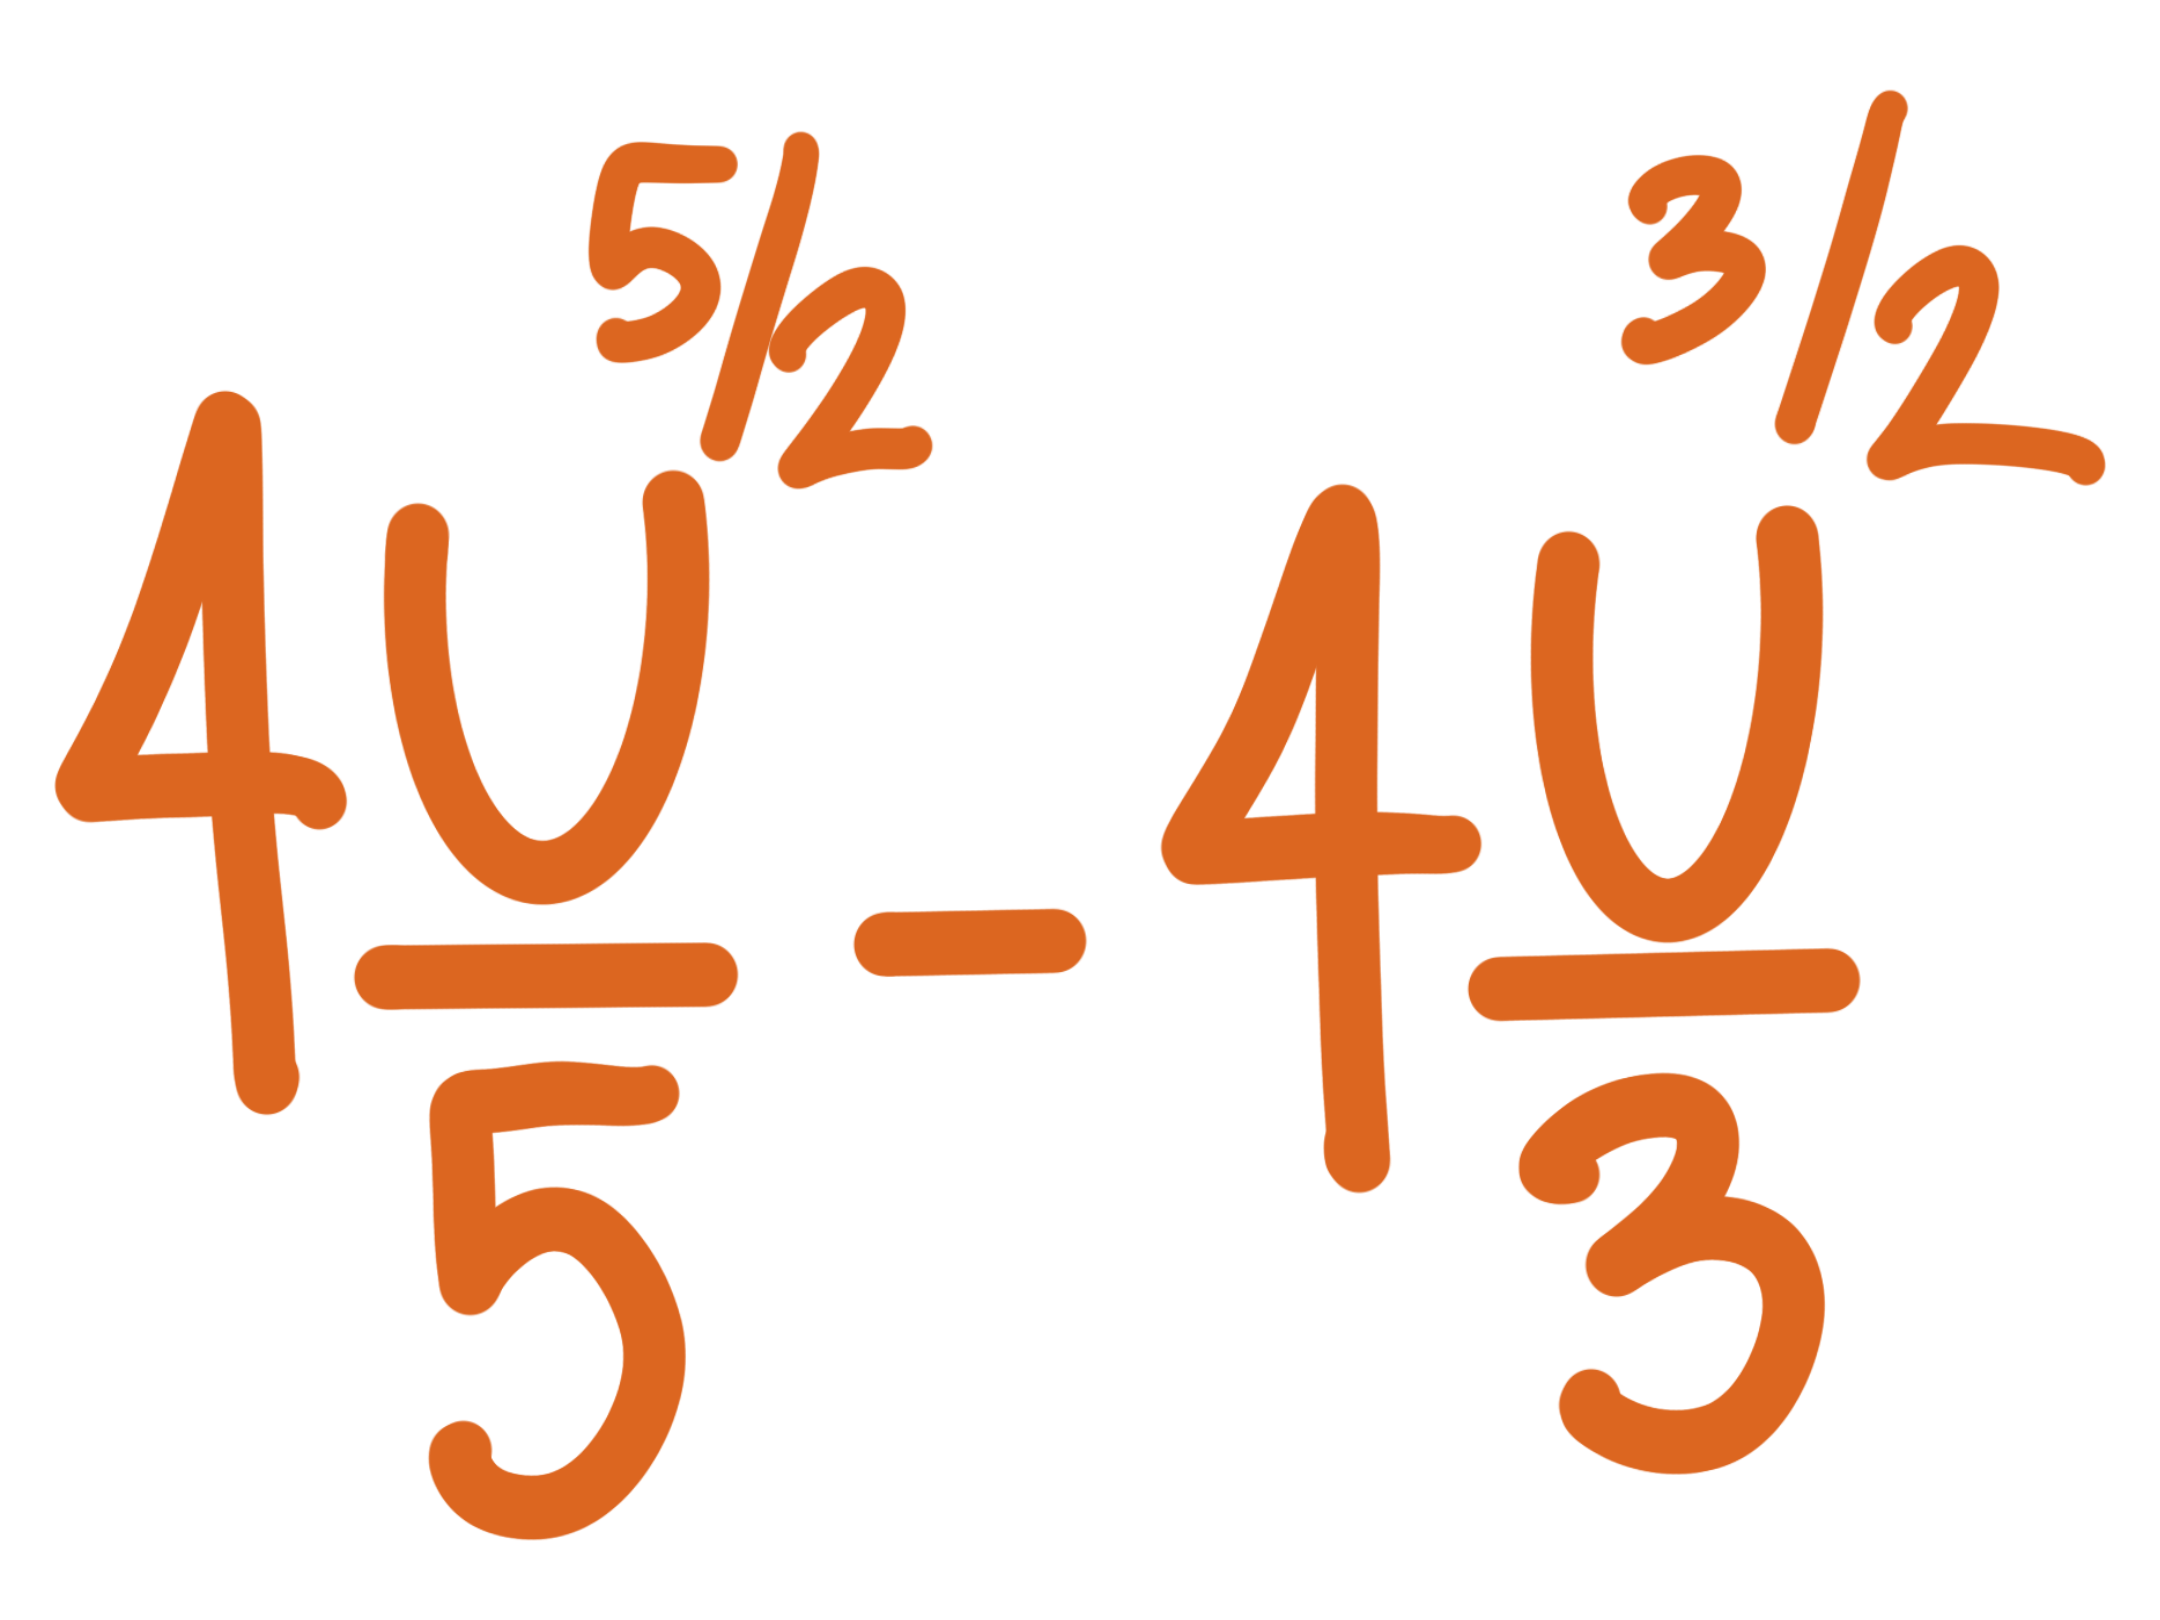 4 U^{5/2}/5 - 4 U^{3/2}/3